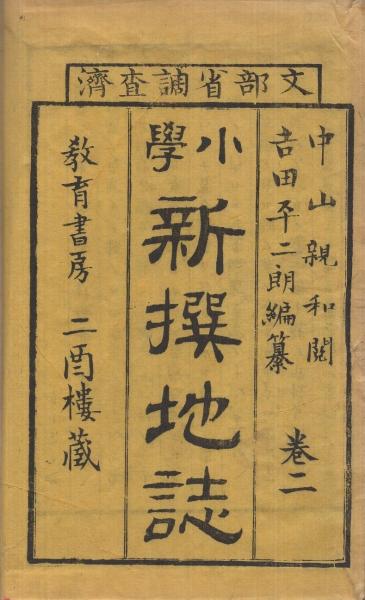 文部省調査濟
中山親和閲
吉田平二郎編纂
卷二
小學
新撰地誌
教育書房 二酉樓藏